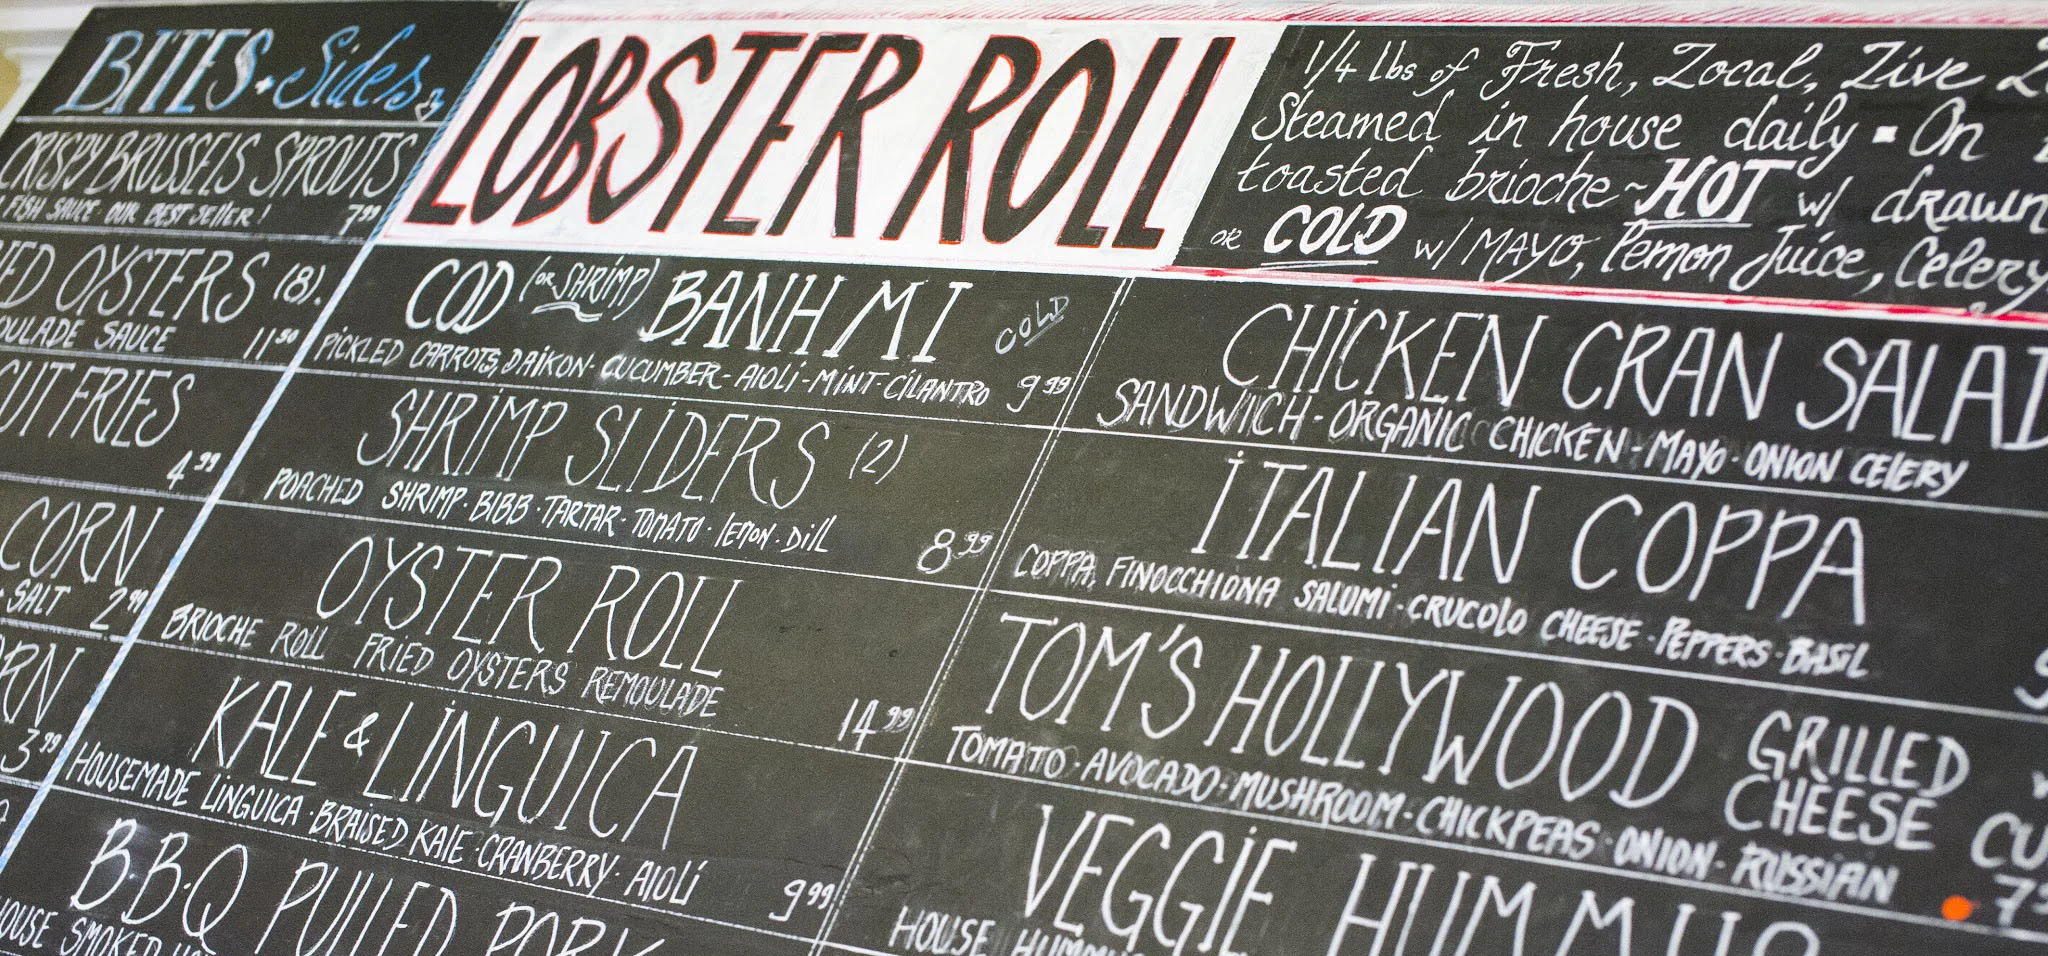 BITES + Sides
CRISPY BRUSSELS SPROUTS
FISH SAUCE · OUR BEST SELLER! 7.99
OYSTERS (8).
SAUCE 11.50
FRIES
4.99
CORN
SALT 2.99
3.99
LOBSTER ROLL
1/4 lbs of Fresh, Local, Live
Steamed in house daily - On
toasted brioche ~ HOT w/ drawn
or COLD w/ MAYO, lemon Juice, Celery
COD (or SHRIMP) BANH MI COLD
PICKLED CARROTS, DAIKON - CUCUMBER - AIOLI - MINT - CILANTRO 9.99
SHRIMP SLIDERS (2)
POACHED SHRIMP · BIBB · TARTAR · TOMATO · lEMON · Dill
8.99
OYSTER ROLL
BRIOCHE ROLL FRIED OYSTERS REMOULADE
14.99
KALE & LINGUICA
HOUSEMADE LINGUICA · BRAISED KALE · CRANBERRY · AIOLI
9.99
B·B·Q PULLED PORK
SMOKED
CHICKEN CRAN SALAD
SANDWICH - ORGANIC CHICKEN - MAYO · ONION CELERY
ITALIAN COPPA
COPPA, FINOCCHIONA SALUMI · CRUCOLO CHEESE · PEPPERS · BASIL
TOM'S HOLLYWOOD GRILLED CHEESE
TOMATO · AVOCADO · MUSHROOM · CHICKPEAS · ONION · RUSSIAN
VEGGIE HUMMUS
HOUSE